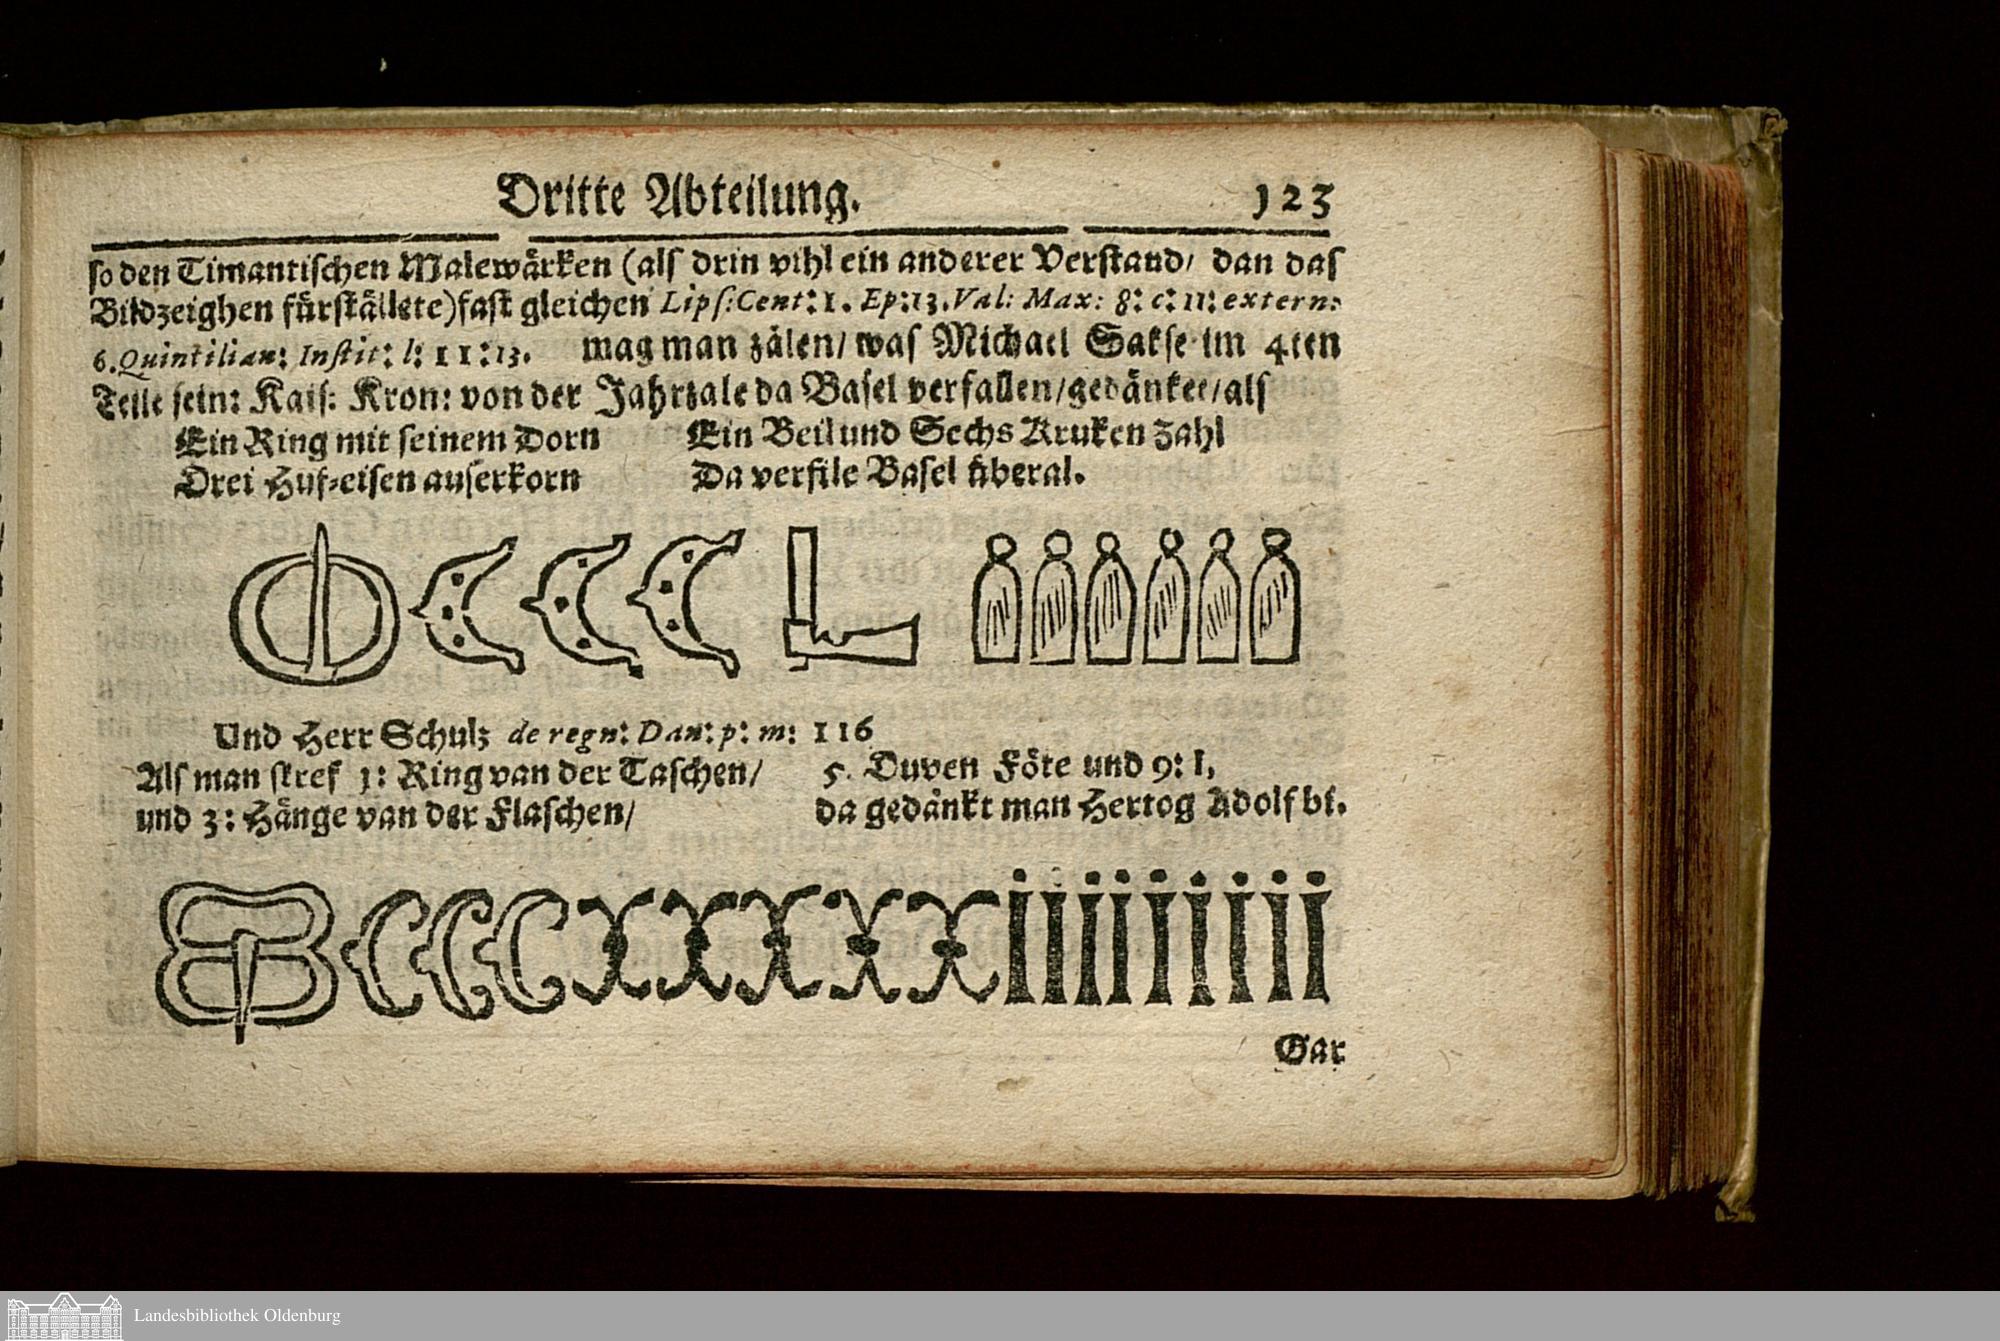 Dritte Abteilung. 123
ſo den Timantiſchen Malewärken (als drin vihl ein anderer Verſtand/ dan das
Bildzeighen fürſtällete) faſt gleichen Lipſ: Cent: 1. Ep: 13. Val: Max: 8: c: 11: extern:
6. Quintilian: Inſtit: l: 11: 13. mag man zälen/ was Michael Sakſe im 4ten
Teile ſein: Kaiſ: Kron: von der Jahrzale da Baſel verfallen/ gedänket/ als
Ein Ring mit ſeinem Dorn
Drei Huf-eiſen auſerkorn
Ein Beil und Sechs Kruken Zahl
Da verfile Baſel überal.
Und Herr Schulz de regn: Dan: p: m: 116
Als man ſcref 1: Ring van der Taſchen/
und 3: Hänge van der Flaſchen/
5. Duven Föte und 9: I,
da gedänkt man Hertog Adolf bi.
Gar
Landesbibliothek Oldenburg